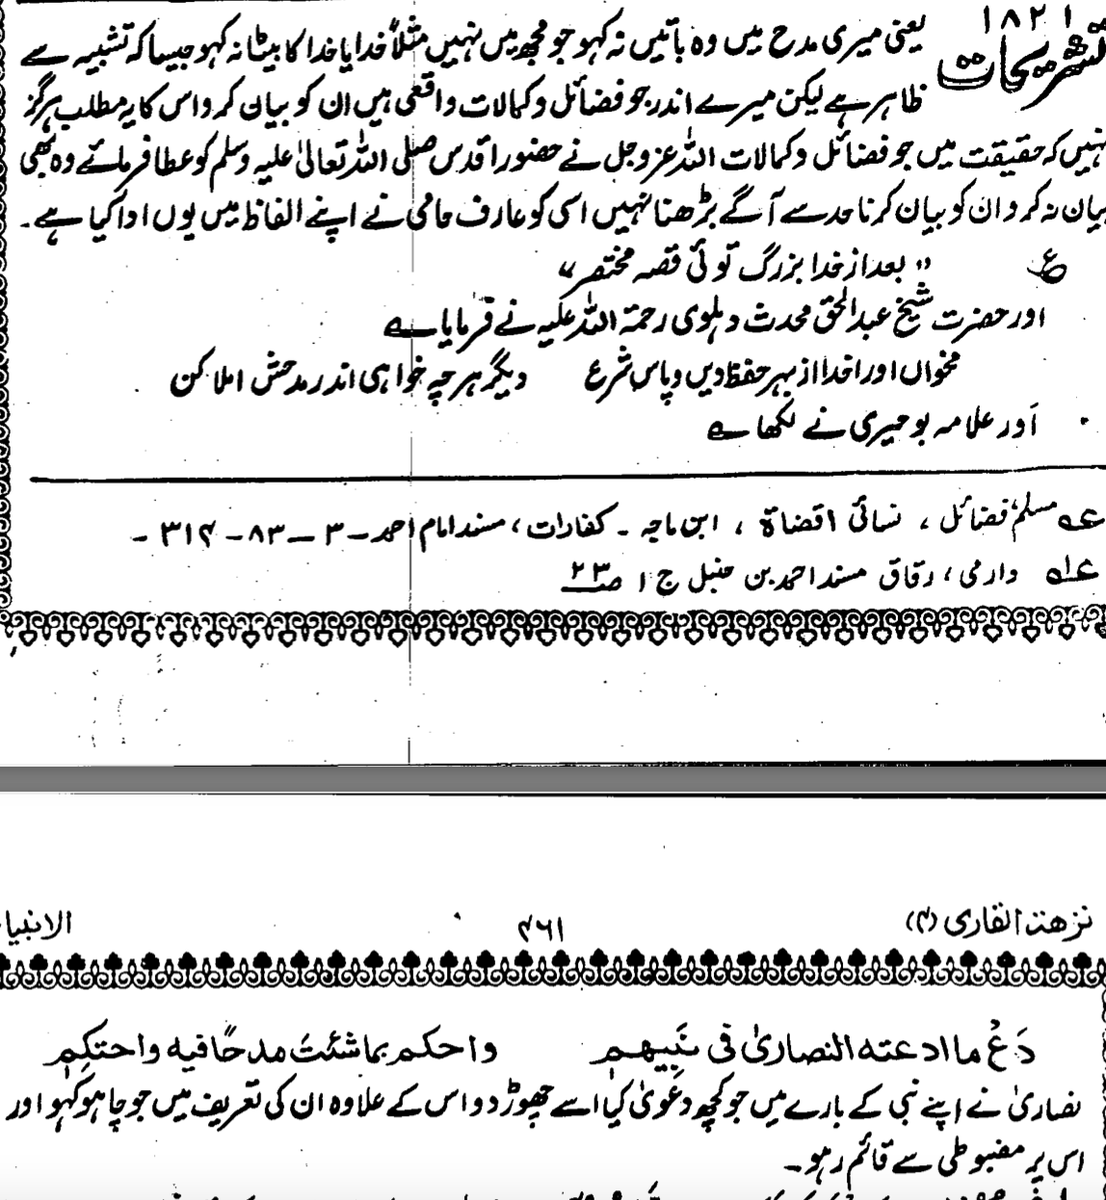 ۱۸۲۱
تشریحات
یعنی میری مدح میں وہ باتیں نہ کہو جو مجھ میں نہیں مثلاً خدا یا خدا کا بیٹا نہ کہو جیسا کہ تشبیہ سے
ظاہر ہے لیکن میرے اندر جو فضائل و کمالات واقعی ہیں ان کو بیان کرو اس کا یہ مطلب ہرگز
نہیں کہ حقیقت میں جو فضائل و کمالات اللہ عز وجل نے حضور اقدس صلی اللہ تعالیٰ علیہ وسلم کو عطا فرمائے وہ بھی
بیان نہ کرو ان کو بیان کرنا حد سے آگے بڑھنا نہیں اسی کو عارف جامی نے اپنے الفاظ میں یوں ادا کیا ہے۔
ع "بعد از خدا بزرگ توئی قصہ مختصر"
اور حضرت شیخ عبدالحق محدث دہلوی رحمۃ اللہ علیہ نے فرمایا ہے
مخواں اورا خدا از بہر حفظ دیں و پاس شرع دیگر ہر چہ خواہی اندر مدحش املا کن
اور علامہ بوصیری نے لکھا ہے
عہ مسلم فضائل ، نسائی اقضاۃ ، ابن ماجہ ۔ کفارات ، مسند امام احمد ۔ ۳ ۔ ۸۳ ۔ ۳۱۴ ۔
عہ۱ دارمی ، رقاق مسند احمد بن حنبل ج ۱ ص ۲۳
نزھۃ القاری (۴) ۴۶۱ الانبیاء
دَعْ ما ادعته النصاریٰ فی نَبِیهِم واحکم بما شئتَ مدحًا فیه واحتکِم
نصاریٰ نے اپنے نبی کے بارے میں جو کچھ دعویٰ کیا اسے چھوڑ دو اس کے علاوہ ان کی تعریف میں جو چاہو کہو اور
اس پر مضبوطی سے قائم رہو۔